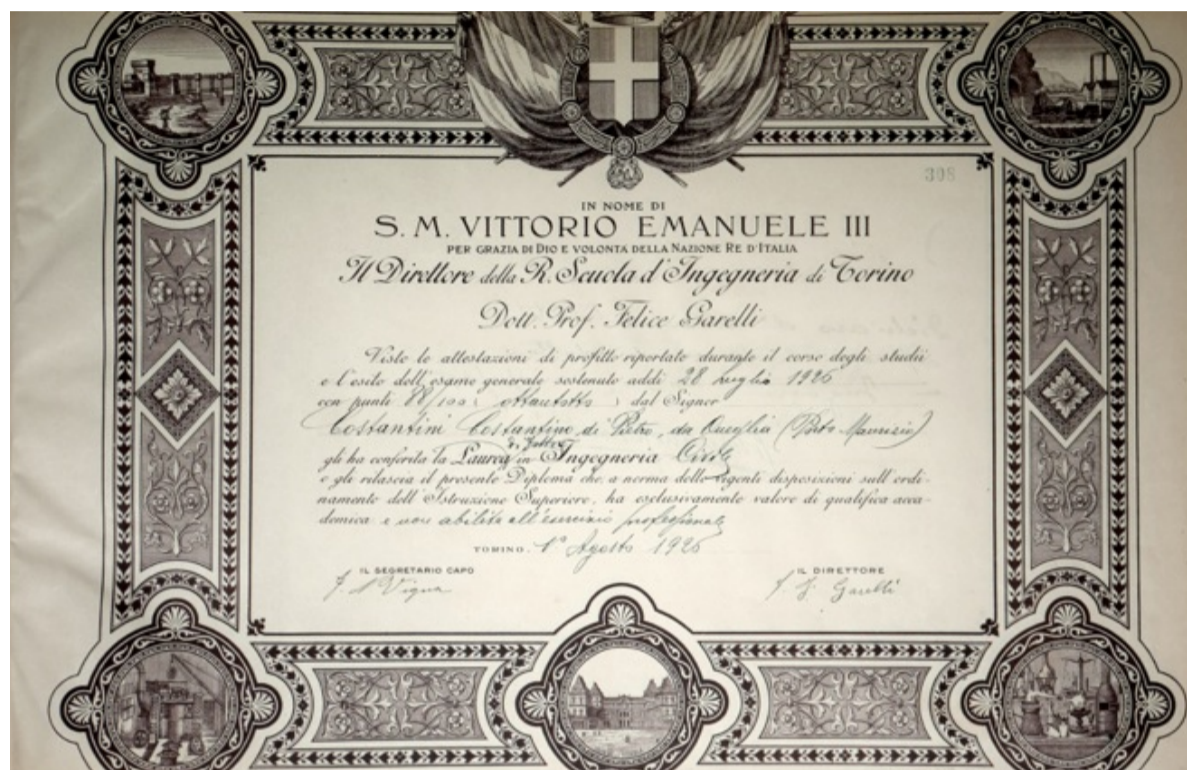 308
IN NOME DI
S. M. VITTORIO EMANUELE III
PER GRAZIA DI DIO E VOLONTÀ DELLA NAZIONE RE D'ITALIA
Il Direttore della R. Scuola d'Ingegneria di Torino
Dott. Prof. Felice Garelli
Viste le attestazioni di profitto riportate durante il corso degli studii
e l'esito dell'esame generale sostenuto addì 28 luglio 1926
con punti 88/100 ( ottantotto ) dal Signor
Costantini Costantino di Pietro, da Oneglia (Porto Maurizio)
gli ha conferita la Laurea di Dottore in Ingegneria Civile
e gli rilascia il presente Diploma che, a norma delle vigenti disposizioni sull'ordi-
namento dell'Istruzione Superiore, ha esclusivamente valore di qualifica acca-
demica e non abilita all'esercizio professionale
TORINO, 1° Agosto 1926
IL SEGRETARIO CAPO
IL DIRETTORE
Vigna
Garelli